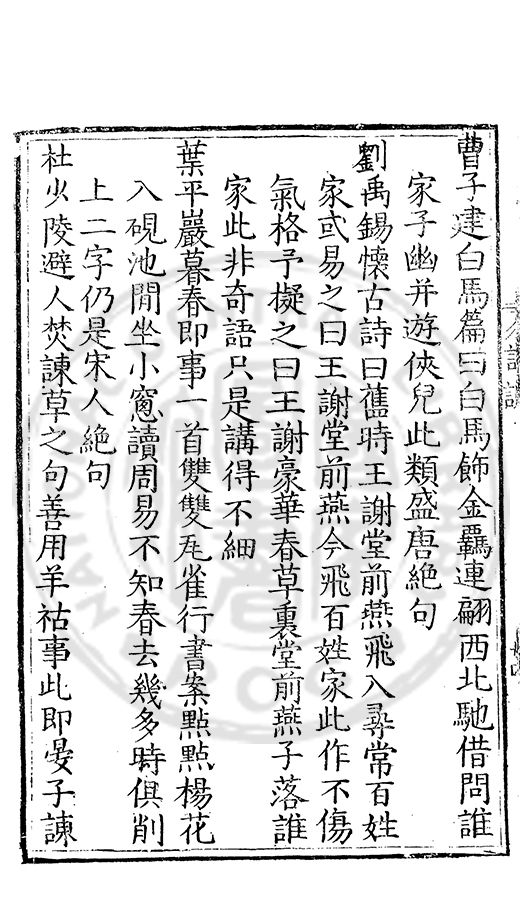 曹子建白馬篇曰白馬飾金羈連翩西北馳借問誰
家子幽并遊俠兒此類盛唐絕句
劉禹錫懷古詩曰舊時王謝堂前燕飛入尋常百姓
家或易之曰王謝堂前燕今飛百姓家此作不傷
氣格予擬之曰王謝豪華春草裏堂前燕子落誰
家此非奇語只是講得不細
葉平巖暮春即事一首雙雙瓦雀行書案點點楊花
入硯池閒坐小窻讀周易不知春去幾多時俱削
上二字仍是宋人絕句
杜少陵避人焚諫草之句善用羊祜事此即晏子諫